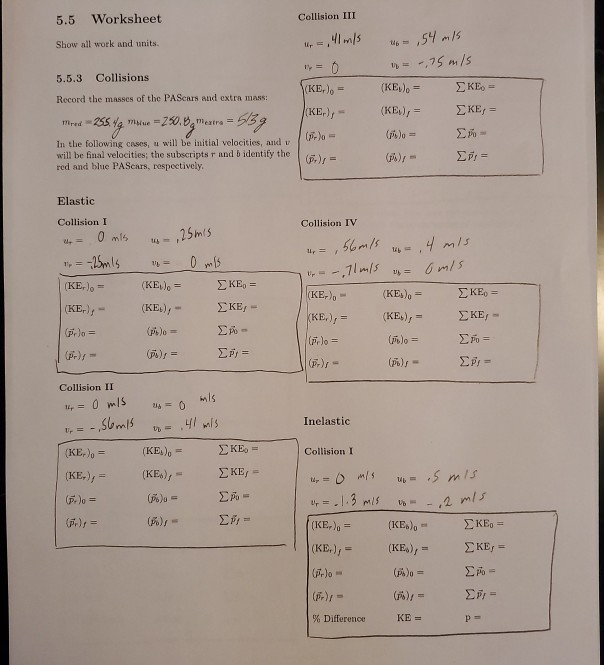 5.5 Worksheet
Show all work and units.
5.5.3 Collisions
Record the masses of the PAScars and extra mass:
m_red = 255.4g m_blue = 250.8g m_extra = 513g
In the following cases, u will be initial velocities, and v
will be final velocities; the subscripts r and b identify the
red and blue PAScars, respectively.
Elastic
Collision I
u_r = 0 m/s u_b = .25m/s
v_r = -.25m/s v_b = 0 m/s
(KE_r)_0 = (KE_b)_0 = ∑KE_0 =
(KE_r)_f = (KE_b)_f = ∑KE_f =
(p⃗_r)_0 = (p⃗_b)_0 = ∑p⃗_0 =
(p⃗_r)_f = (p⃗_b)_f = ∑p⃗_f =
Collision II
u_r = 0 m/s u_b = 0 m/s
v_r = -.56m/s v_b = .41 m/s
(KE_r)_0 = (KE_b)_0 = ∑KE_0 =
(KE_r)_f = (KE_b)_f = ∑KE_f =
(p⃗_r)_0 = (p⃗_b)_0 = ∑p⃗_0 =
(p⃗_r)_f = (p⃗_b)_f = ∑p⃗_f =
Collision III
u_r = .41m/s u_b = .54 m/s
v_r = 0 v_b = -.75 m/s
(KE_r)_0 = (KE_b)_0 = ∑KE_0 =
(KE_r)_f = (KE_b)_f = ∑KE_f =
(p⃗_r)_0 = (p⃗_b)_0 = ∑p⃗_0 =
(p⃗_r)_f = (p⃗_b)_f = ∑p⃗_f =
Collision IV
u_r = .56m/s u_b = .4 m/s
v_r = -.71m/s v_b = 0m/s
(KE_r)_0 = (KE_b)_0 = ∑KE_0 =
(KE_r)_f = (KE_b)_f = ∑KE_f =
(p⃗_r)_0 = (p⃗_b)_0 = ∑p⃗_0 =
(p⃗_r)_f = (p⃗_b)_f = ∑p⃗_f =
Inelastic
Collision I
u_r = 0 m/s u_b = .5 m/s
v_r = -1.3 m/s v_b = -.2 m/s
(KE_r)_0 = (KE_b)_0 = ∑KE_0 =
(KE_r)_f = (KE_b)_f = ∑KE_f =
(p⃗_r)_0 = (p⃗_b)_0 = ∑p⃗_0 =
(p⃗_r)_f = (p⃗_b)_f = ∑p⃗_f =
% Difference KE = p =